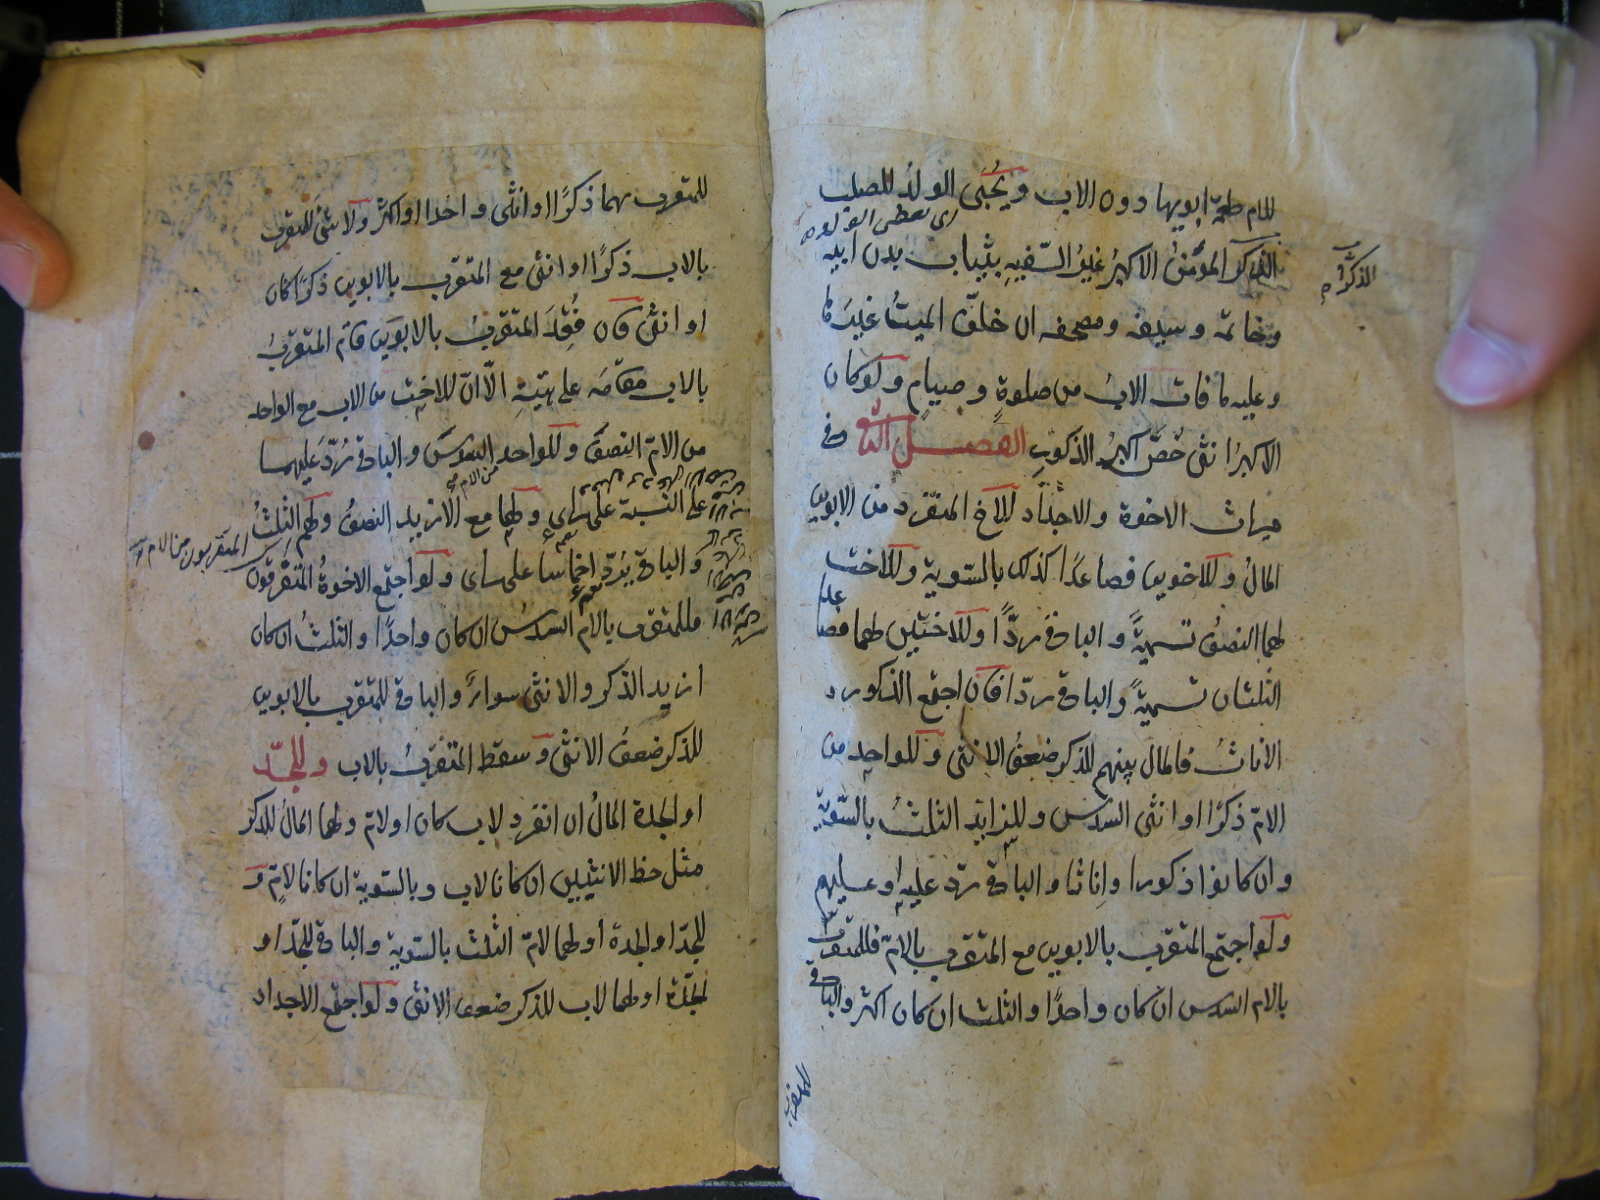 للام طعمة ابويها دون الاب ويُحْبى الولدُ للصلب
اى يعطى الولد
الذكر المؤمنُ الاكبرُ غيرُ السّفيهِ بثياب بدن ابيه
الذكرُ
وخاتمه وسيفه ومصحفه ان خلّف الميتُ غيرَها
وعليه ما فات الابُ من صلوةٍ وصيامٍ ولو كان
الاكبرُ انثى خُصَّ اكبرُ الذكورِ الفصل الثانى فى
ميراث الاخوة والاجداد للاخ المنفرد من الابوين
المالُ وللاخوين فصاعدًا كذلك بالسّوية وللاخت
لهما النصفُ تسميةً والباقى ردًّا وللاختين لهما فصاعدا
الثلثان تسميةً والباقى ردّا فان اجتمع الذكور و
الاناثُ فالمال بينهم للذكر ضعفُ الانثى وللواحد من
الامّ ذكرًا او انثى السدس وللزايد الثلثُ بالسّوية
وان كانوا ذكورا واِناثا والباقى يردّ عليه او عليهم
ولو اجتمع المتقرب بالابوين مع المتقرب بالامّ فللمتقرّب
بالام السّدس ان كان واحدًا والثلث ان كان اكثر والباقى
للمتقرب
للمتقرب بهما ذكرًا او انثى واحدا او اكثرَ ولا شئَ للمتقرب
بالاب ذكرًا او انثى مع المتقرب بالابوين ذكرًا كان
او انثى فان فُقِدَ المتقربُ بالابوَين قام المتقربُ
بالاب مقامَه على هيئتِهِ الّا انّ للاخت من الاب مع الواحد
من الامّ النصفَ وللواحد السّدسَ والباقى يُردّ عليهما
من الام
على النسبة على راى ولها مع الازيد النصفُ ولهم الثلثُ
والباقى يردّ اخماسا على راى ولو اجتمع الاخوةُ المتفرّقون
فللمتقرب بالام السدسُ ان كان واحدًا والثلثُ ان كان
ازيد الذكر والانثى سواءً والباقى للمتقرب بالابوين
للذكر ضعفُ الانثى وسقط المتقربُ بالاب وللجدّ
او الجدة المالُ ان انفرد لاب كان او لامّ ولهما المالُ للذكر
مثل حظ الانثيين ان كانا لاب وبالسّوية ان كانا لامٍّ و
للجدّ او الجدة او لهما لامّ الثلث بالسّوية والباقى للجدّ او
الجدّة او لهما لاب للذكر ضعف الانثى ولو اجتمع الاجداد